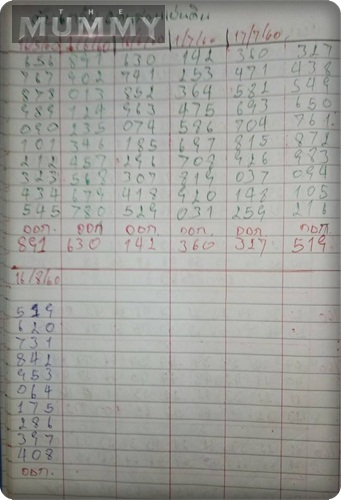 THE
MUMMY
1/7/60 17/7/60
656 891 630 142 360 327
767 902 741 253 471 438
878 013 852 364 582 549
989 124 963 475 693 650
090 235 074 586 704 761
101 346 185 697 815 872
212 457 296 708 926 983
323 568 307 819 037 094
434 679 418 920 148 105
545 780 529 031 259 216
ออก. ออก ออก. ออก. ออก. ออก
891 630 142 360 327 519
16/8/60
519
620
731
842
953
064
175
286
397
408
ออก.